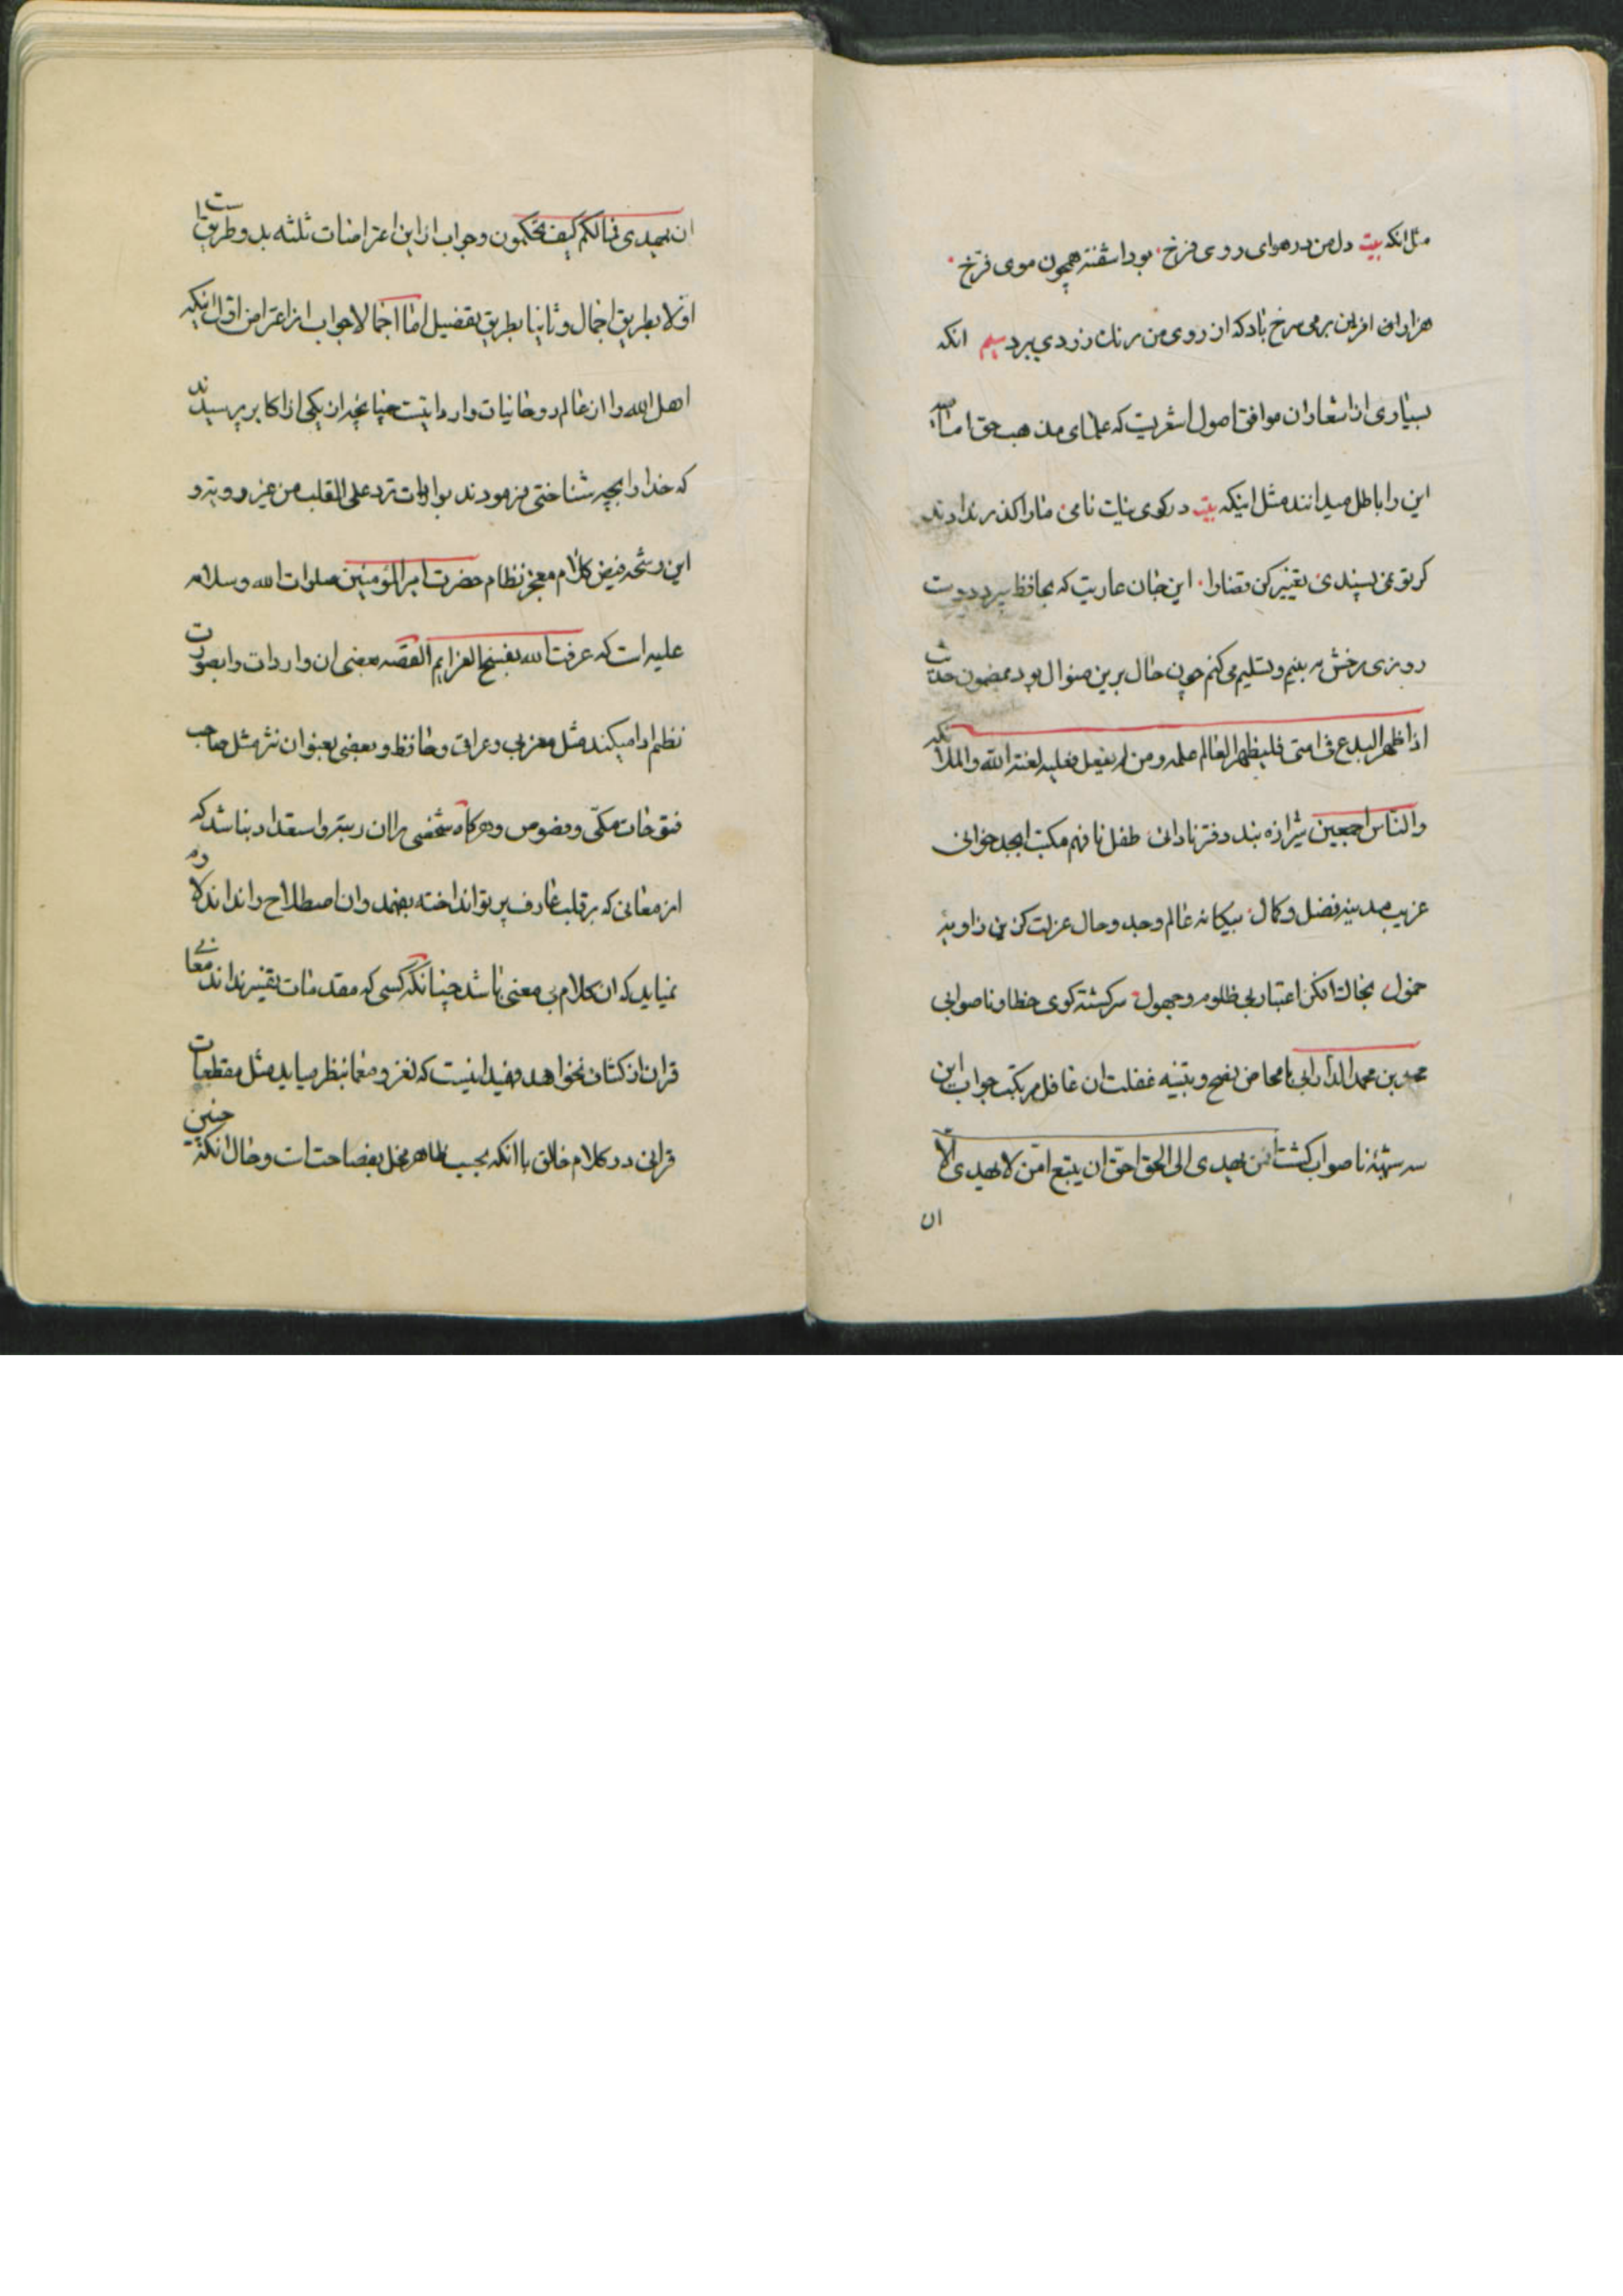 مثل انکه بیت دل من در هوای روی فرخ بود اشفته همچون موی فرخ
هزاران افرین بر می سرخ باد که از روی من رنک زردی ببرد سیم انکه
بسیاری از اشعار ان موافق اصول اشعریت که علمای مذهب حق امامیه
این را باطل میدانند مثل اینکه بیت در کوی نیک نامی ما را کذر ندادند
کر تو نمی پسندی تغییر کن قضا را این جان عاریت که بحافظ سپرد دوست
روزی رخش به بینم و تسلیم وی کنم چون حال برین منوال بود بمضمون حدیث
اذا ظهر البدع فی امتی فلیظهر العالم علمه و من لم یفعل فعلیه لعنة الله و الملائکة
والناس اجمعین شیرازه بند دفتر نادانی طفل نافهم مکتب ابجد خوانی
غریب مدینه فضل و کمال بیکانه عالم وجد و حال عزلت کزین زاویه
خمول بخاک افکن اعتبار بی ظلوم و جهول سرکشته کوی خطا و ناصوابی
محمد بن محمد الدارابی بامحاض نصح و تنبیه غفلت ان غافل مرتکب جواب این
سه شبهه ناصواب کشت افمن یهدی الی الحق احق ان یتبع امن لا یهدی الا
ان
ان یهدی فمالکم کیف تحکمون و جواب از این اعتراضات ثلثه بدو طریق است
اولا بطریق اجمال و ثانیا بطریق تفصیل اما اجمالا جواب از اعتراض اول اینکه
اهل الله را از عالم روحانیات وارداتیست چنانچه از یکی از اکابر پرسیدند
که خدا را بچه شناختی فرمودند بواردات ترد علی القلب من غیر رویه و
این رشحه فیض کلام معجز نظام حضرت امیر المؤمنین صلوات الله و سلامه
علیه است که عرفت الله بفسخ العزایم القصه بعضی ان واردات را بصورت
نظم ادا میکنند مثل مغربی و عراقی و حافظ و بعضی بعنوان نثر مثل صاحب
فتوحات مکی و فصوص و هرکاه شخصی را ان رتبه و استعداد نباشد که
از معانی که بر قلب عارف پرتو انداخته بفهمد و ان اصطلاح را نداند لازم
نمیاید که ان کلام بی معنی باشد چنانکه کسی که مقدمات تفسیر نداند معانی
قران از کشاف نخواهد فهمید اینست که لغز و معما بنظر میاید مثل مقطعات
قرانی در کلام خالق با انکه بحسب ظاهر مخل بفصاحت است و حال انکه نه چنین